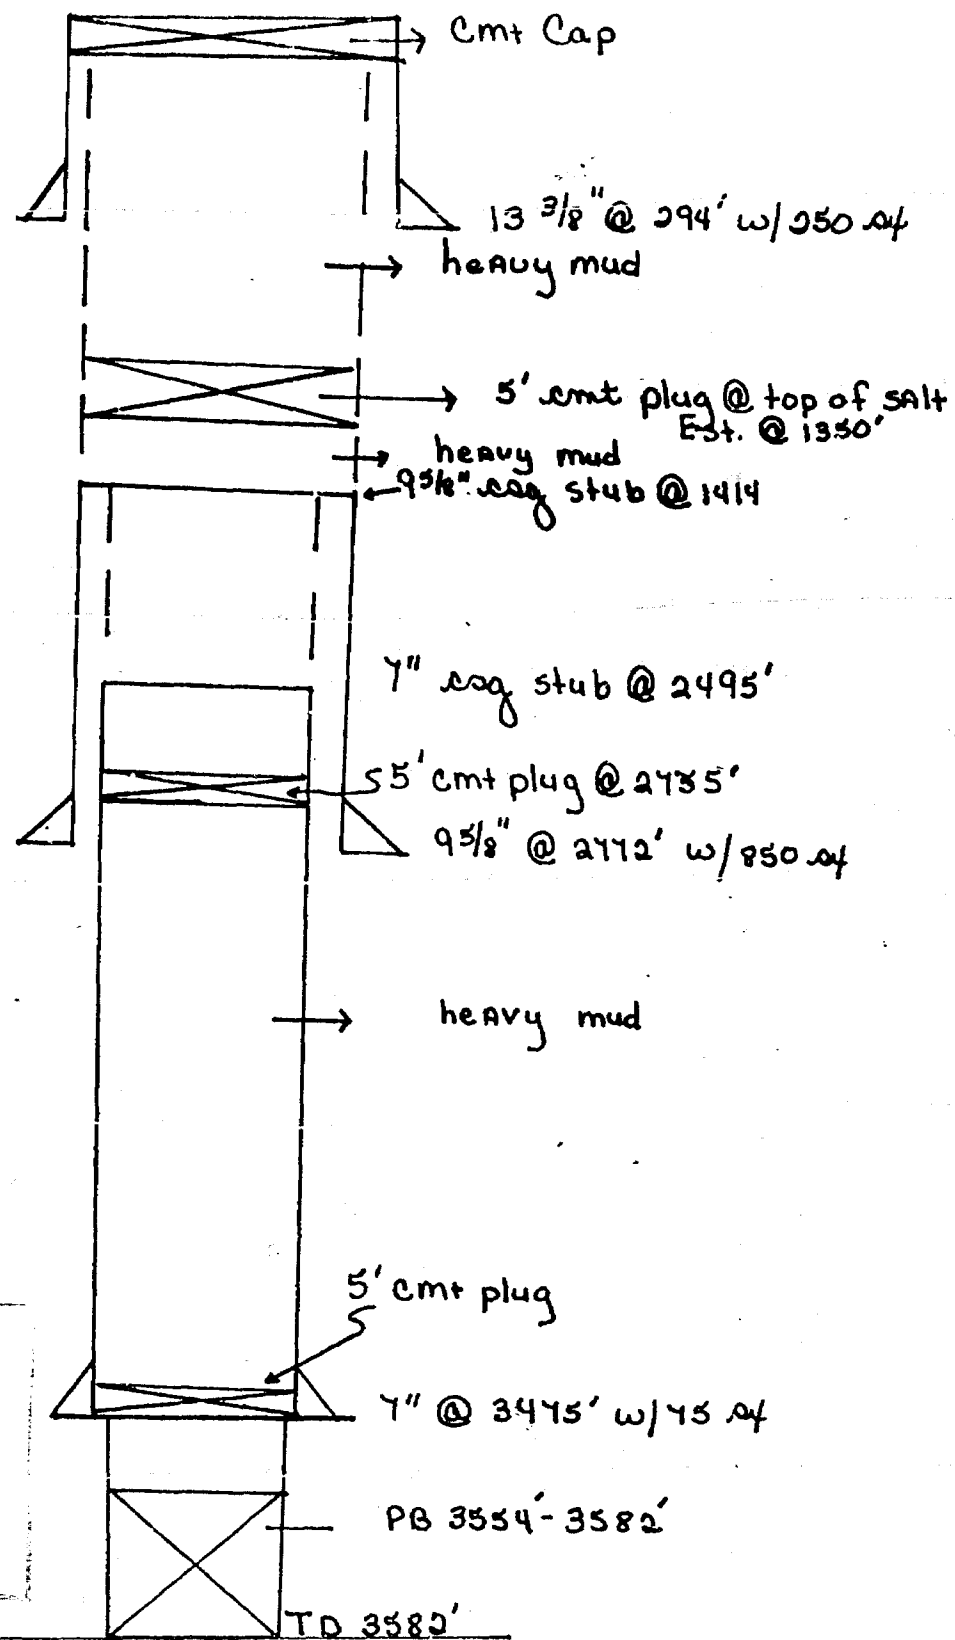 Cmt Cap
13 3/8" @ 294' w/250 sx
heavy mud
5' cmt plug @ top of salt
Est. @ 1350'
heavy mud
9 5/8" csg stub @ 1414
7" csg stub @ 2495'
5' cmt plug @ 2735'
9 5/8" @ 2772' w/850 sx
heavy mud
5' cmt plug
7" @ 3475' w/75 sx
PB 3554'-3582'
TD 3582'